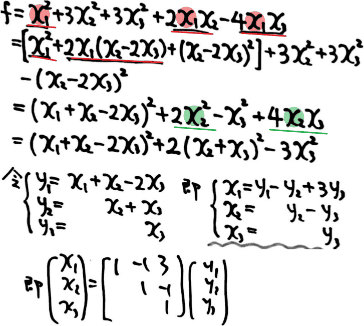 f = x₁²+3x₂²+3x₃²+2x₁x₂-4x₁x₃
=[x₁²+2x₁(x₂-2x₃)+(x₂-2x₃)²]+3x₂²+3x₃²
-(x₂-2x₃)²
=(x₁+x₂-2x₃)²+2x₂²-x₃²+4x₂x₃
=(x₁+x₂-2x₃)²+2(x₂+x₃)²-3x₃²
令 { y₁= x₁+x₂-2x₃ 即 { x₁=y₁-y₂+3y₃
y₂= x₂+x₃ x₂= y₂-y₃
y₃= x₃ x₃= y₃
即 (x₁ x₂ x₃) = (1 -1 3 1 -1 1) (y₁ y₂ y₃)